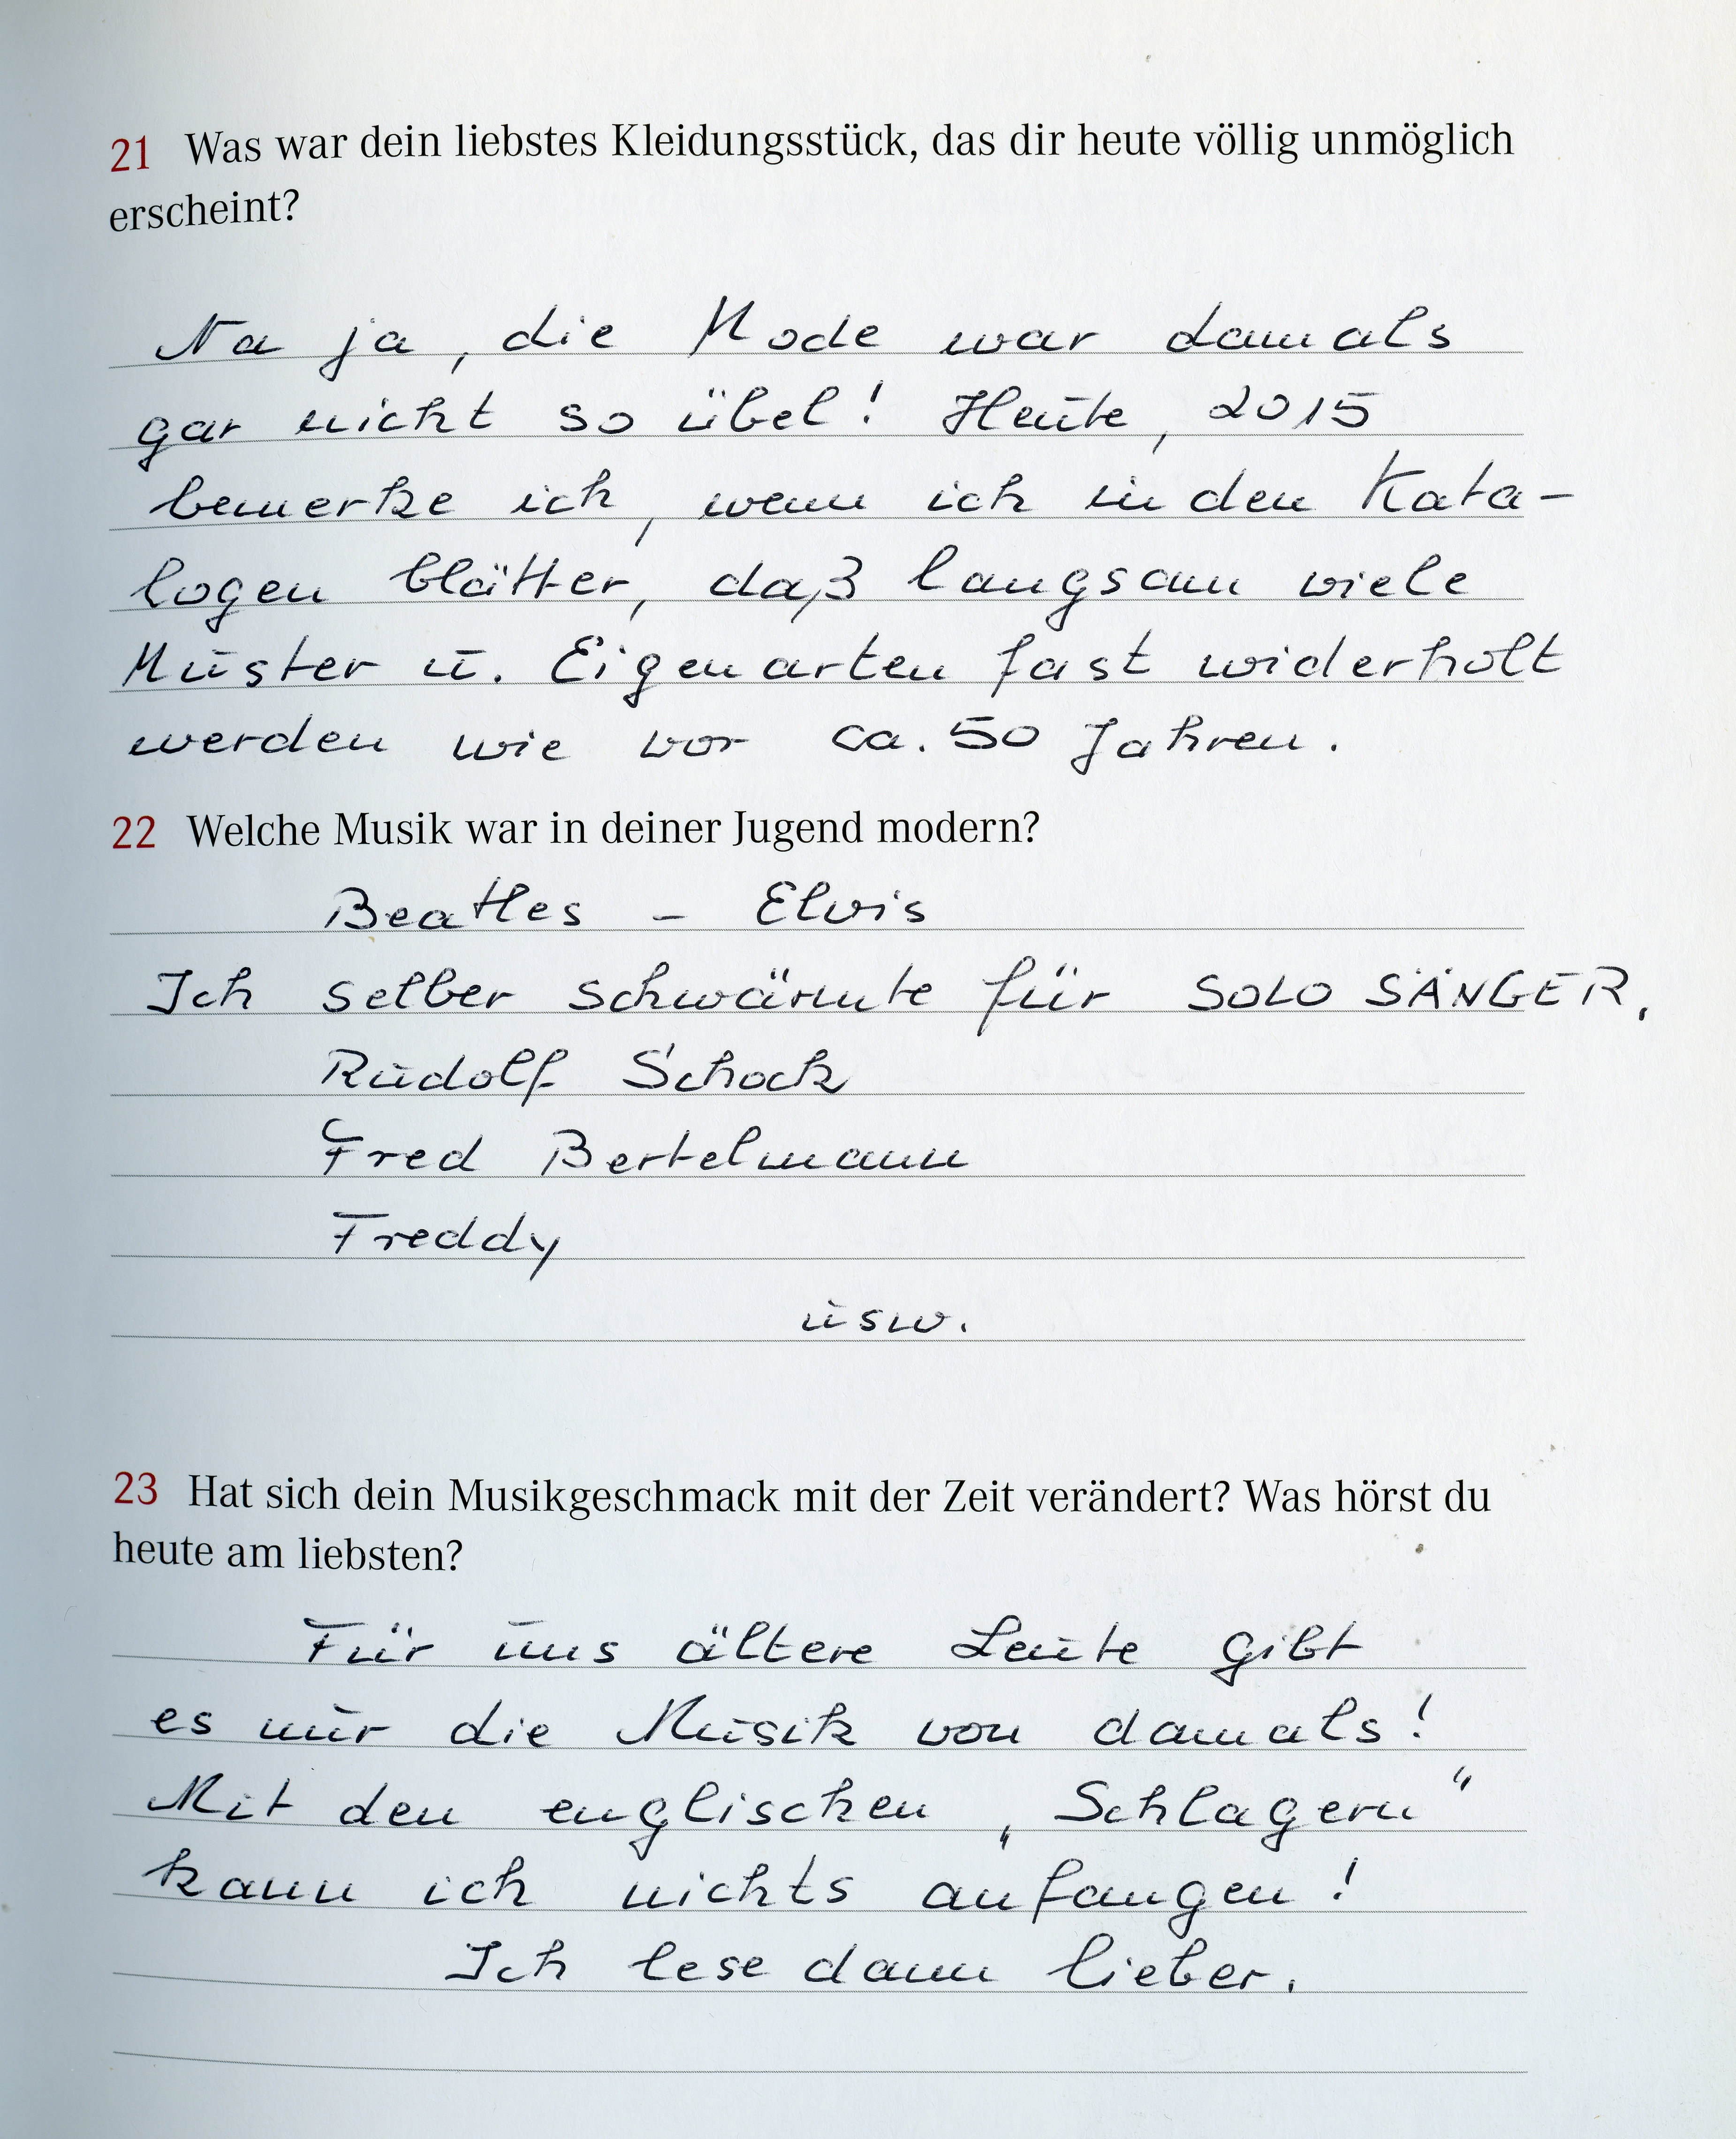 21 Was war dein liebstes Kleidungsstück, das dir heute völlig unmöglich
erscheint?
Na ja, die Mode war damals
gar nicht so übel! Heute, 2015
bemerke ich, wenn ich in den Kata-
logen blätter, daß langsam viele
Muster u. Eigenarten fast widerholt
werden wie vor ca. 50 Jahren.
22 Welche Musik war in deiner Jugend modern?
Beatles - Elvis
Ich selber schwärmte für SOLO SÄNGER,
Rudolf Schock
Fred Bertelmann
Freddy
usw.
23 Hat sich dein Musikgeschmack mit der Zeit verändert? Was hörst du
heute am liebsten?
Für uns ältere Leute gibt
es nur die Musik von damals!
Mit den englischen „Schlagern“
kann ich nichts anfangen!
Ich lese dann lieber.